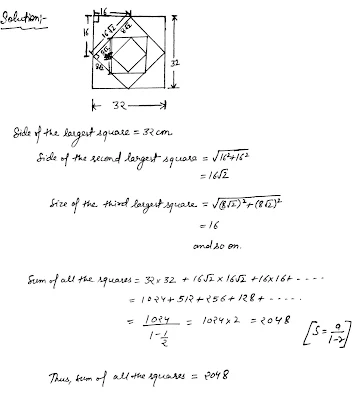 Solution:-
16
16
16√2
8√2
8√2
32
32
Side of the largest square = 32 cm
Side of the second largest square = √16²+16²
= 16√2
Size of the third largest square = √(8√2)²+(8√2)²
= 16
and so on.
Sum of all the squares = 32×32 + 16√2×16√2 +16×16+ - - - -
= 1024+512+256+128+ - - - - -
= 1024/(1-1/2) = 1024×2 = 2048 [S = a/(1-r)]
Thus, sum of all the squares = 2048